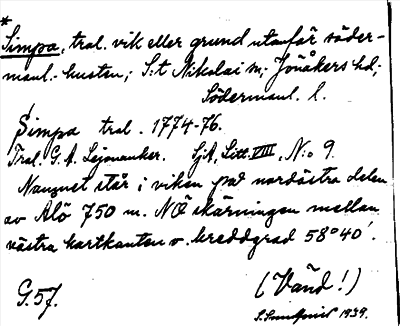 *
Simpa, tral. vik eller grund utanför söder-
manl.-kusten; S:t Nikolai sn; Jönåkers hd;
Södermanl. l.
Simpa tral. 1774-76.
Tral. G. A. Lejonanker. SjA, Litt. VIII, N:o 9.
Namnet står i viken på nordöstra delen
av Alö 750 m. NÖ skärningen mellan
västra kartkanten o. breddgrad 58°40'.
G.57. (Vänd!)
S. Sundqvist 1939.